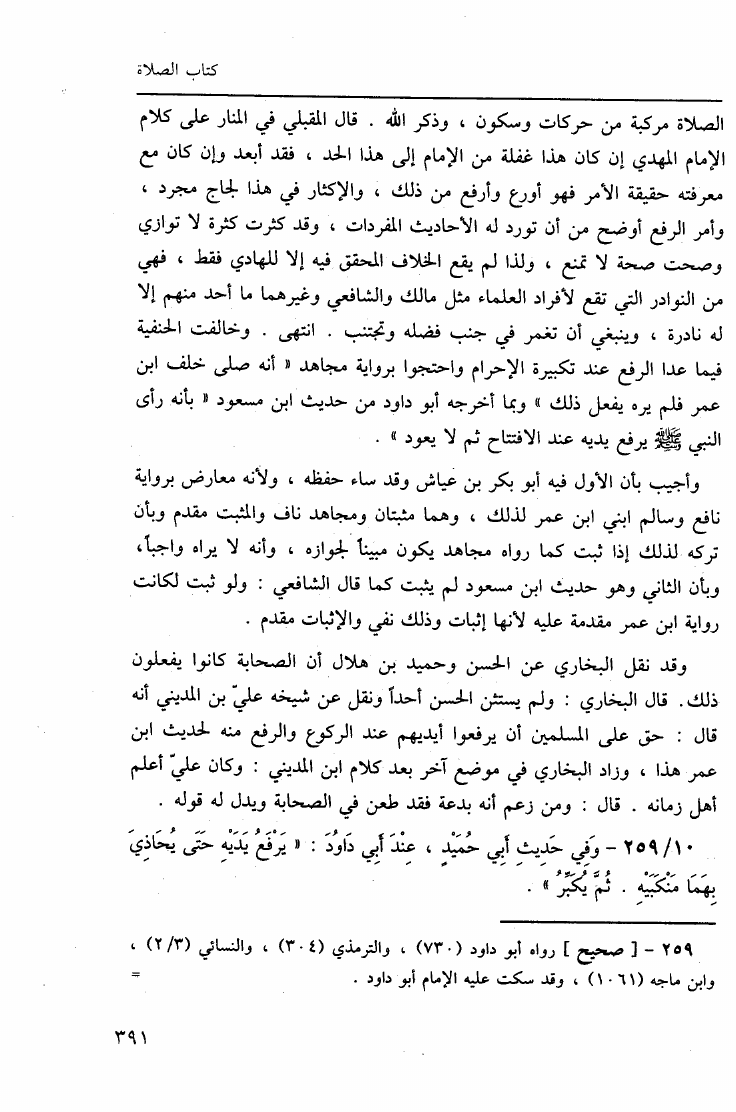 كتاب الصلاة
الصلاة مركبة من حركات وسكون ، وذكر الله . قال المقبلي في المنار على كلام
الإمام المهدي إن كان هذا غفلة من الإمام إلى هذا الحد ، فقد أبعد وإن كان مع
معرفته حقيقة الأمر فهو أورع وأرفع من ذلك ، والإكثار في هذا لجاج مجرد ،
وأمر الرفع أوضح من أن تورد له الأحاديث المفردات ، وقد كثرت كثرة لا توازي
وصحت صحة لا تمنع ، ولذا لم يقع الخلاف المحقق فيه إلا للهادي فقط ، فهي
من النوادر التي تقع لأفراد العلماء مثل مالك والشافعي وغيرهما ما أحد منهم إلا
له نادرة ، وينبغي أن تغمر في جنب فضله وتجتنب . انتهى . وخالفت الحنفية
فيما عدا الرفع عند تكبيرة الإحرام واحتجوا برواية مجاهد « أنه صلى خلف ابن
عمر فلم يره يفعل ذلك » وبما أخرجه أبو داود من حديث ابن مسعود « بأنه رأى
النبي ﷺ يرفع يديه عند الافتتاح ثم لا يعود » .
وأجيب بأن الأول فيه أبو بكر بن عياش وقد ساء حفظه ، ولأنه معارض برواية
نافع وسالم ابني ابن عمر لذلك ، وهما مثبتان ومجاهد ناف والمثبت مقدم وبأن
تركه لذلك إذا ثبت كما رواه مجاهد يكون مبيناً لجوازه ، وأنه لا يراه واجباً،
وبأن الثاني وهو حديث ابن مسعود لم يثبت كما قال الشافعي : ولو ثبت لكانت
رواية ابن عمر مقدمة عليه لأنها إثبات وذلك نفي والإثبات مقدم .
وقد نقل البخاري عن الحسن وحميد بن هلال أن الصحابة كانوا يفعلون
ذلك. قال البخاري : ولم يستثن الحسن أحداً ونقل عن شيخه عليّ بن المديني أنه
قال : حق على المسلمين أن يرفعوا أيديهم عند الركوع والرفع منه لحديث ابن
عمر هذا ، وزاد البخاري في موضع آخر بعد كلام ابن المديني : وكان عليّ أعلم
أهل زمانه . قال : ومن زعم أنه بدعة فقد طعن في الصحابة ويدل له قوله .
٢٥٩/١٠ – وَفِي حَدِيثِ أَبِي حُمَيْدٍ ، عِنْدَ أَبِي دَاوُدَ : « يَرْفَعُ يَدَيْهِ حَتَى يُحَاذِيَ
بِهِمَا مَنْكَبَيْهِ . ثُمَّ يُكَبِّرُ » .
٢٥٩ – [ صحيح ] رواه أبو داود (٧٣٠) ، والترمذي (٣٠٤) ، والنسائي (٢/٣) ،
وابن ماجه (١٠٦١) ، وقد سكت عليه الإمام أبو داود . =
٣٩١